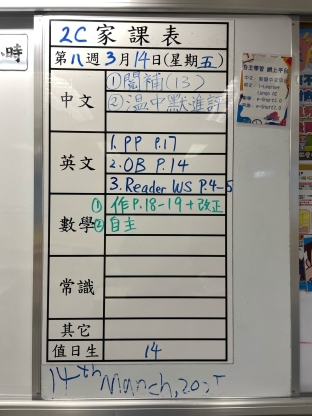 2C 家課表
第八週3月14日(星期五)
中文
①閱補(13)
②溫中默進評
英文
1. PP P.17
2. OB P.14
3. Reader WS P.4-5
數學
① 作P.18-19+改正
② 自主
常識
其它
值日生 14
14th March, 
時
自主學習 網上平台